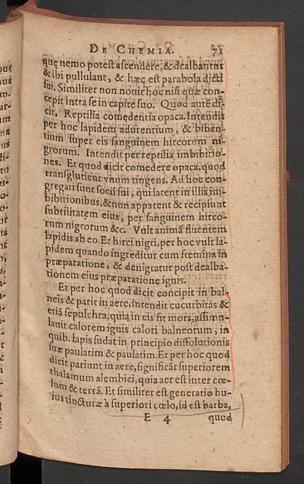 DE CHEMIA. 71
que nemo potest ascendere, & dealbantur
& ibi pullulant, & hæc est parabola dicti
sui. Similiter non novit hoc nisi quæ con-
cepit intra se in capite suo. Quod aute di-
cit, Reptilia comedentia opaca. Intendit
per hoc lapidem adurentium, & biben-
tium super eis sanguinem hircorum ni-
grorum. Intendit per reptilia imbibitio-
nes. Et quod dicit comedere opaca, quod
transglutient vnum tingens. Ad hoc con-
gregati sunt socii sui, qui latent in illis im-
bibitionibus, & non apparent & recipiunt
subtilitatem eius, per sanguinem hirco-
rum nigrorum &c. Vult animã fluentem
lapidis ab eo. Et hirci nigri, per hoc vult la-
pidem quando ingreditur cum fœmina in
præparatione, & denigratur post dealba-
tionem eius præparatione ignis.
Et per hoc quod dicit concipit in bal-
neis & parit in aere, intendit cucurbitas &
etiã sepulchra, quia in eis fit mors, assimu-
lauit calorem ignis calori balneorum, in
quib. lapis sudat in principio dissolutionis
suæ paulatim & paulatim. Et per hoc quod
dicit pariunt in aere, significãt superiorem
thalamum alembici, quia aer est inter cœ-
lum & terrã. Et similiter est generatio hu-
ius tincturæ à superiori cœlo, id est barba,
E 4 quod